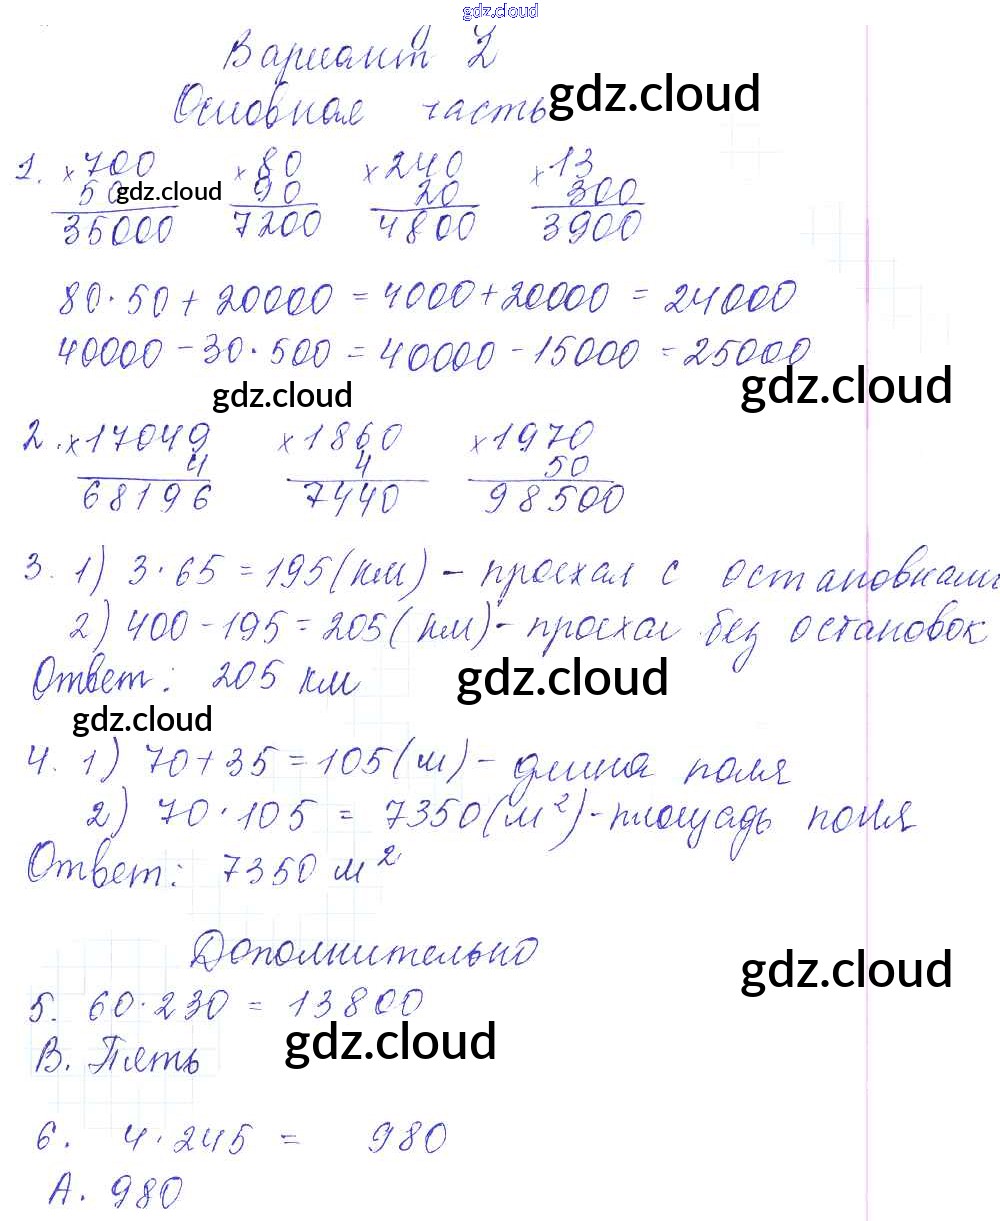 gdz.cloud
Вариант 2
Основная часть gdz.cloud
1. ×700 ×80 ×240 ×13
50 gdz.cloud 90 20 300
35000 7200 4800 3900
80·50 + 20000 = 4000 + 20000 = 24000
40000 - 30·500 = 40000 - 15000 = 25000
gdz.cloud gdz.cloud
2. ×17049 ×1860 ×1970
4 4 50
68196 7440 98500
3. 1) 3·65 = 195 (км) - проехал с остановками
2) 400 - 195 = 205 (км) - проехал без остановок
Ответ: 205 км gdz.cloud
gdz.cloud
4. 1) 70 + 35 = 105 (м) - длина поля
2) 70·105 = 7350 (м²) - площадь поля
Ответ: 7350 м²
Дополнительно
gdz.cloud
5. 60·230 = 13800
gdz.cloud
В. Пять
6. 4·245 = 980
А. 980